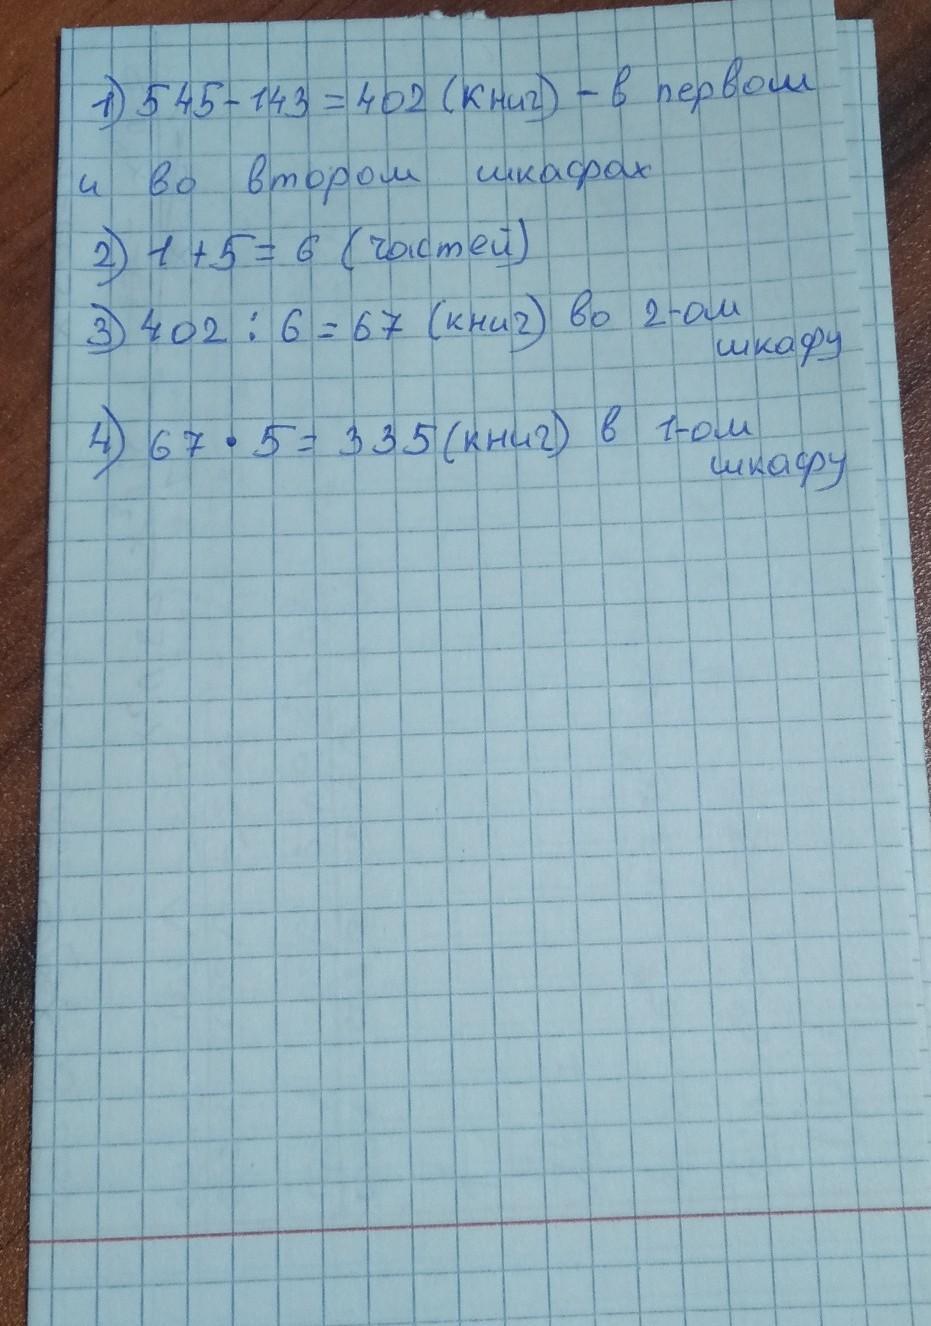 1) 545-143=402 (книг) - в первом
и во втором шкафах
2) 1+5=6 (частей)
3) 402:6=67 (книг) во 2-ом
шкафу
4) 67·5=335 (книг) в 1-ом
шкафу